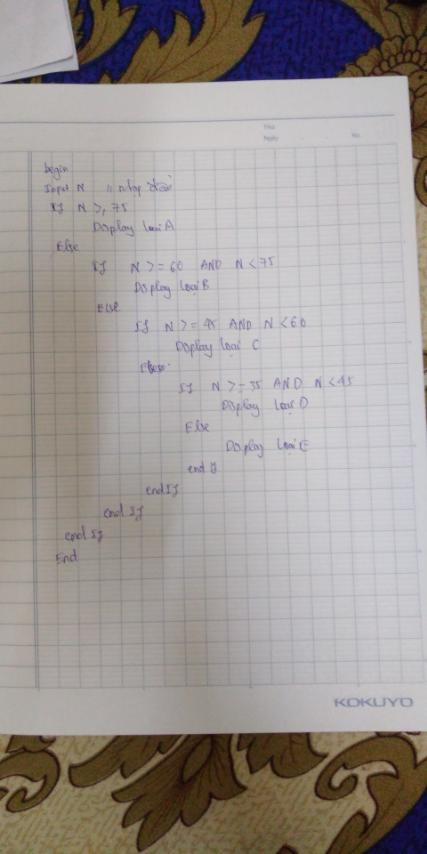 No.
begin
Input N // nhập điểm
If N >, 75
Display loại A
Else
If N >= 60 AND N < 75
Display loại B
Else
If N >= 45 AND N < 60
Display loại C
Else
If N >= 35 AND N < 45
Display loại D
Else
Display loại E
end if
end If
end If
end If
End
KOKUYO